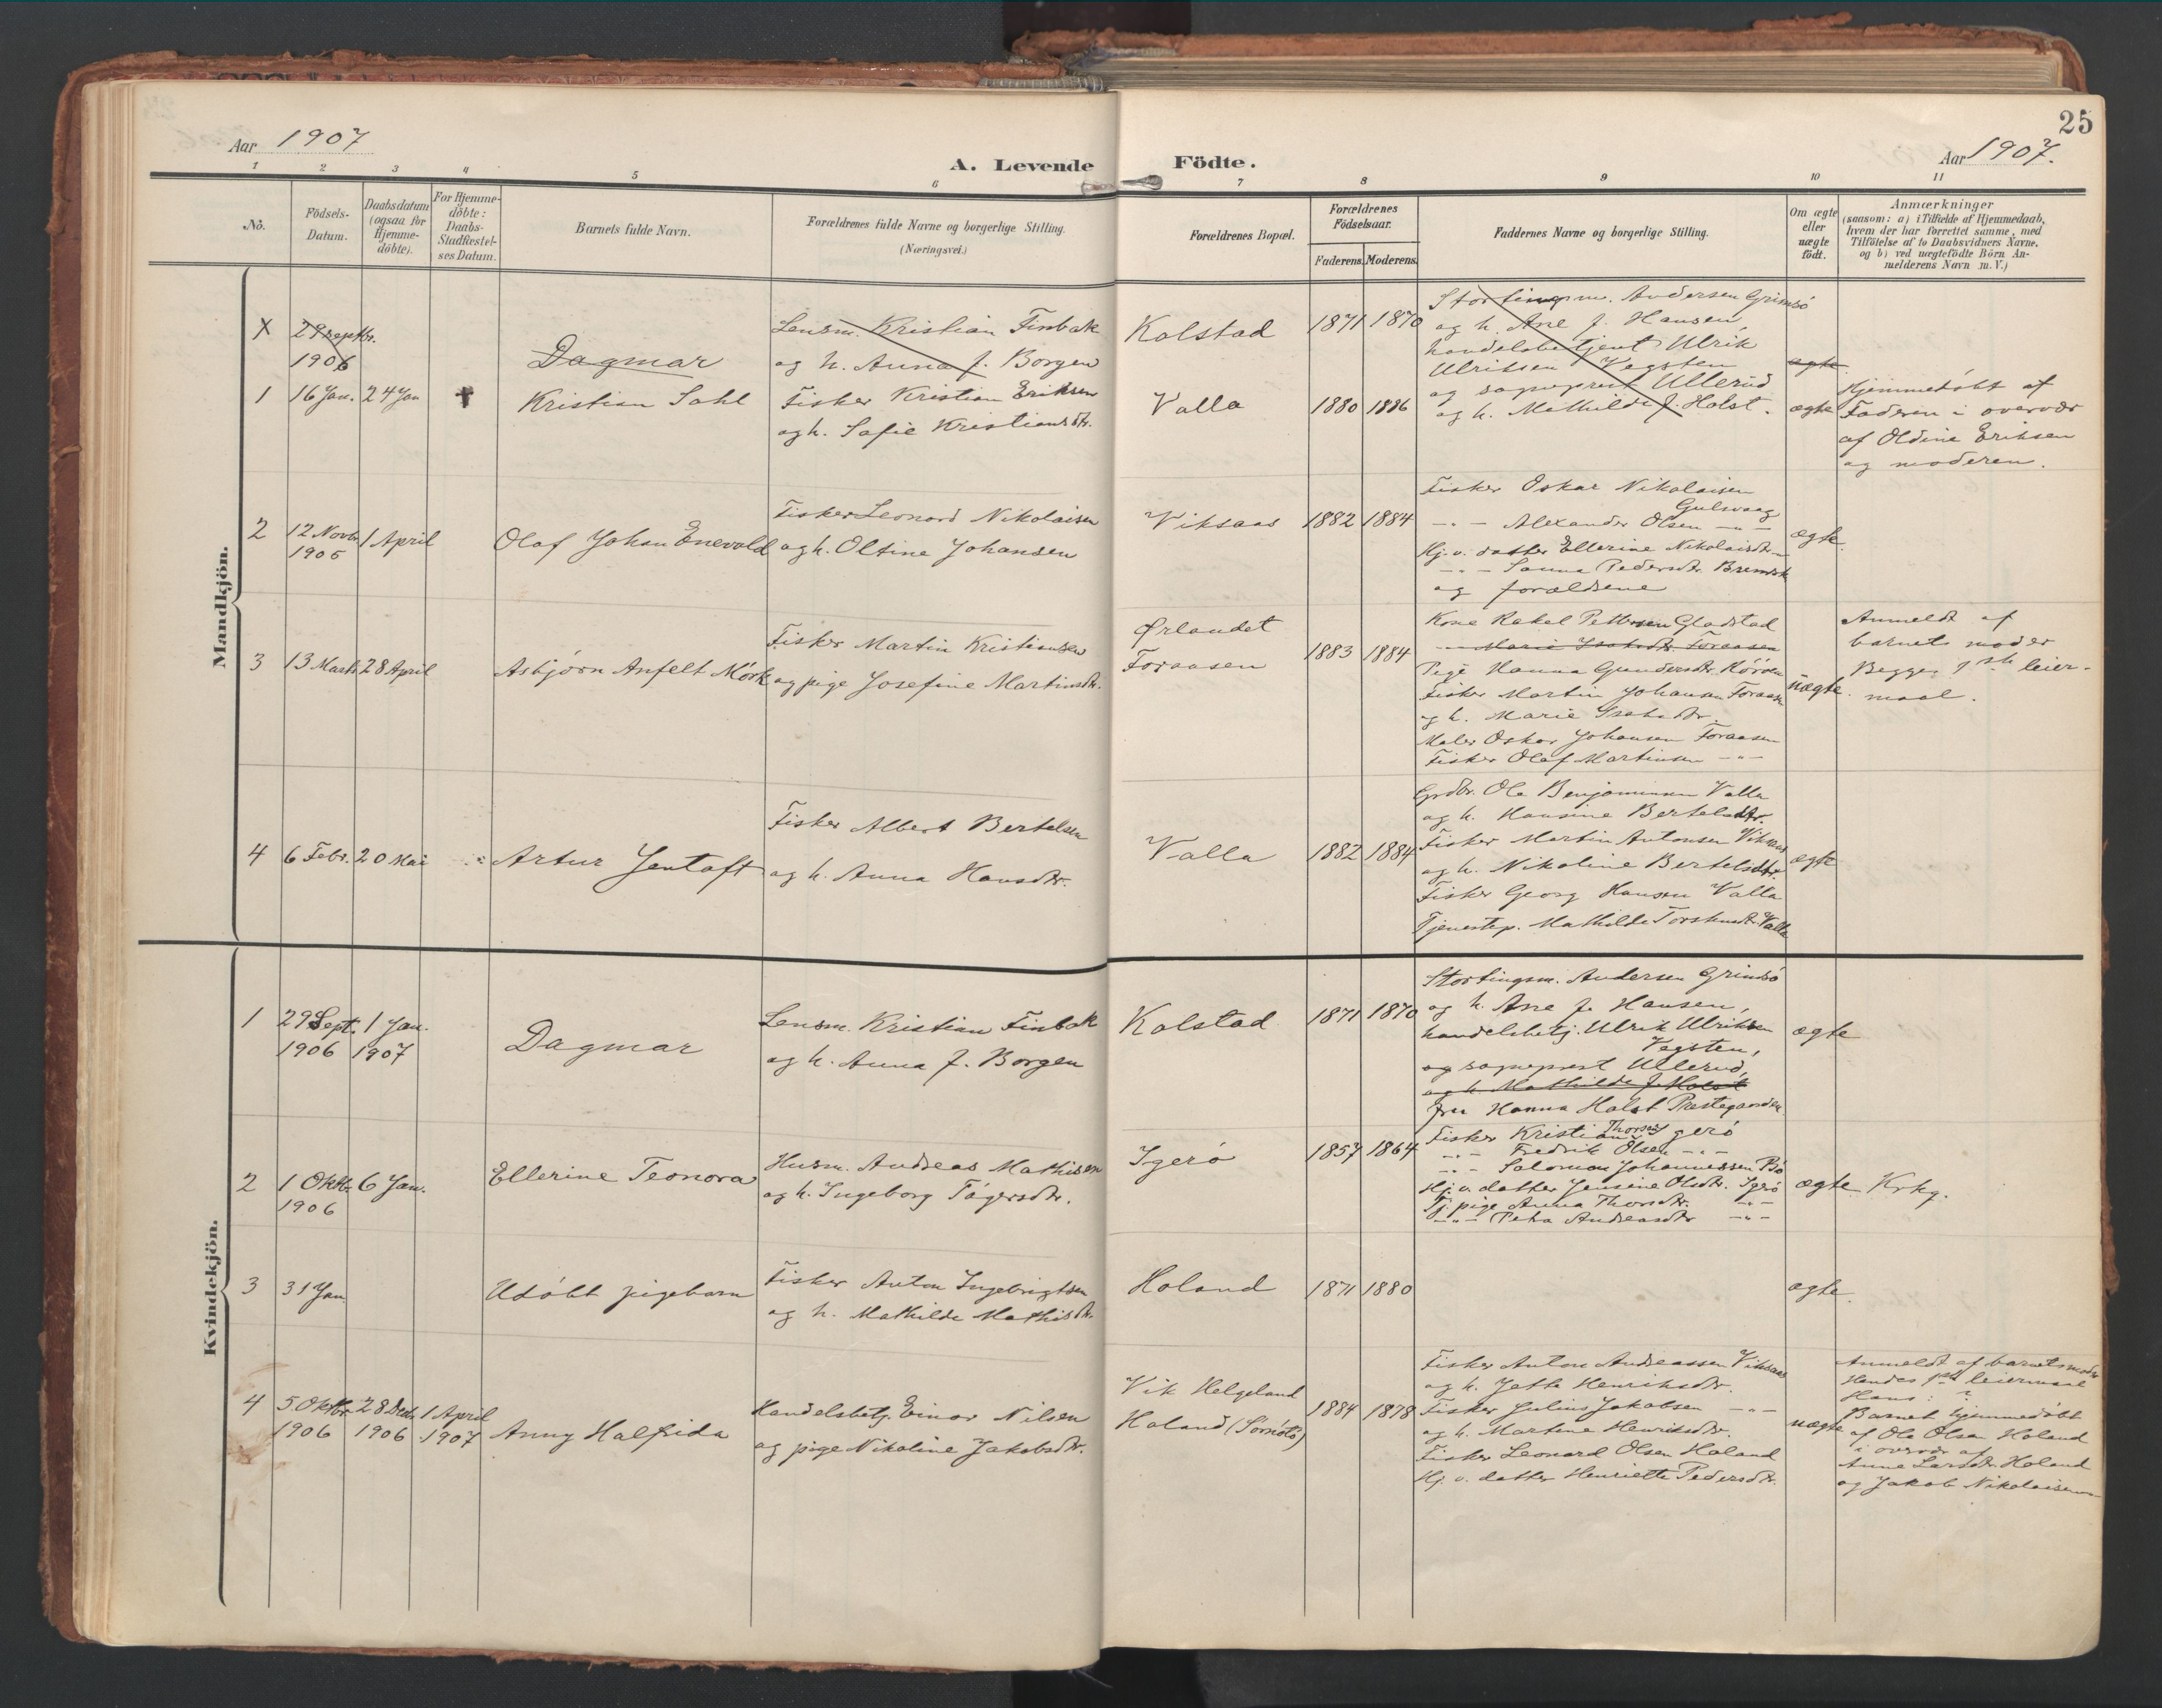 25
Aar 1907
A. Levende Födte.
Aar 1907.
1 2 3 4 5 6 7 8 9 10 11
No.
Födsels-
Datum.
Daabsdatum
(ogsaa for
Hjemme-
döbte).
For Hjemme-
döbte:
Daabs-
Stadfæstel-
ses Datum.
Barnets fulde Navn.
Forældrenes fulde Navne og borgerlige Stilling.
(Næringsvei.)
Forældrenes Bopæl.
Forældrenes
Födselsaar.
Faderens. Moderens.
Faddernes Navne og borgerlige Stilling.
Om ægte
eller
uægte
födt.
Anmærkninger
(saasom: a) i Tilfælde af Hjemmedaab,
hvem der har forrettet samme, med
Tilföielse af to Daabsvidners Navne.
og b) ved uægtefödte Börn An-
melderens Navn m. V.)
Mandkjön.
X
29 septbr.
1906
Dagmar
Lensm. Kristian Finbak
og h. Anna f. Borgen
Kolstad
1871 1870
Stortingsm. Andersen Grimsö
og h. Ane f. Hansen,
handelsbetjent Ulrik
Ulriksen Vegsten
og sogneprest Ullerud
og h. Mathilde f. Holst.
ægte
1
16 Jan. 24 Jan
Kristian Sahl
Fisker Kristian Eriksen
og h. Sofie Kristiansdtr.
Valla
1880 1886
ægte
Hjemmedöbt af
Faderen i overvær
af Oldine Eriksen
og moderen.
2
12 Novbr.
1905
1 April
Olaf Johan Enevold
Fisker Leonard Nikolaisen
og h. Oltine Johansen
Viksaas
1882 1884
Fisker Oskar Nikolaisen
Gulsvaag
-"- Alexander Olsen -"-
Hj. v. datter Ellerine Nikolaisdtr. -
-"- Sanna Pedersdtr. Bremst
og forældrene
ægte.
3
13 Marts 28 April
Asbjörn Anfelt Mörk
Fisker Martin Kristiansen
og pige Josefine Martinsdtr.
Ørlandet
Foraasen
1883 1884
Kone Rakel Pettersen Gladstad
-"- Marie Isaksdtr. Foraasen
Pige Hanna Gundersdtr.
Fisker Martin Johansen Foraasen
og h. Marie Isaksdtr.
Maler Oskar Johansen Foraasen
Fisker Olaf Martinsen -"-
uægte.
Anmeldt af
barnets moder
Begges 1ste leier-
maal.
4
6 Febr. 20 Mai
Artur Jentoft
Fisker Albert Bertelsen
og h. Anna Hansdtr.
Valla
1882 1884
Grdbr. Ole Benjaminsen Valla
og h. Hansine Bertelsdtr.
Fisker Martin Antonsen Viksaas
og h. Nikoline Bertelsdtr.
Fisker Georg Hansen Valla
Tjenestep. Mathilde Valla
ægte
Kvindekjön.
1
29 Sept.
1906
1 Jan.
1907
Dagmar
Lensm. Kristian Finbak
og h. Anna f. Borgen
Kolstad
1871 1870
Stortingsm. Andersen Grimsö
og h. Ane f. Hansen,
handelsbetj. Ulrik Ulriksen
Vegsten,
og sogneprest Ullerud,
og h. Mathilde f. Holst
fru Hanna Holst Prestegaarden
ægte
2
1 Oktbr.
1906
6 Jan.
Ellerine Teonora
Husm. Andreas Mathisen
og h. Ingeborg Tögersdtr.
Igerö
1857 1864
Fisker Kristian Thorsen Igerö
-"- Fredrik Olsen -"-
-"- Salomon Johannessen Bö
Hj. v. datter Jensine Olsdtr. Igerö
Tj. pige Anna Thorsdtr. -"-
-"- Petra Andreasdtr -"-
ægte
Krkg.
3
31 Jan.
Udöbt pigebarn
Fisker Anton Ingebrigtsen
og h. Mathilde Mathisdtr.
Holand
1871 1880
ægte.
4
5 Oktbr.
1906
28 Decbr.
1906
1 April
1907
Anny Halfrida
Handelsbetj. Einar Nilsen
og pige Nikoline Jakobsdtr.
Vik Helgeland
Holand (Sömnes)
1884 1878
Fisker Anton Andreassen Viksaas
og h. Jette Henriksdtr.
Fisker Julius Jakobsen -"-
og h. Martine Henriksdtr.
Fisker Leonard Olsen Holand
Hj. v. datter Henriette Pedersdtr.
uægte
Anmeldt af barnets moder
Hendes 1ste leiermaal
Hans: ?
Barnet hjemmedöbt
af Ole Olsen Holand
i overvær af
Anne Larsdtr. Holand
og Jakob Nikolaisen